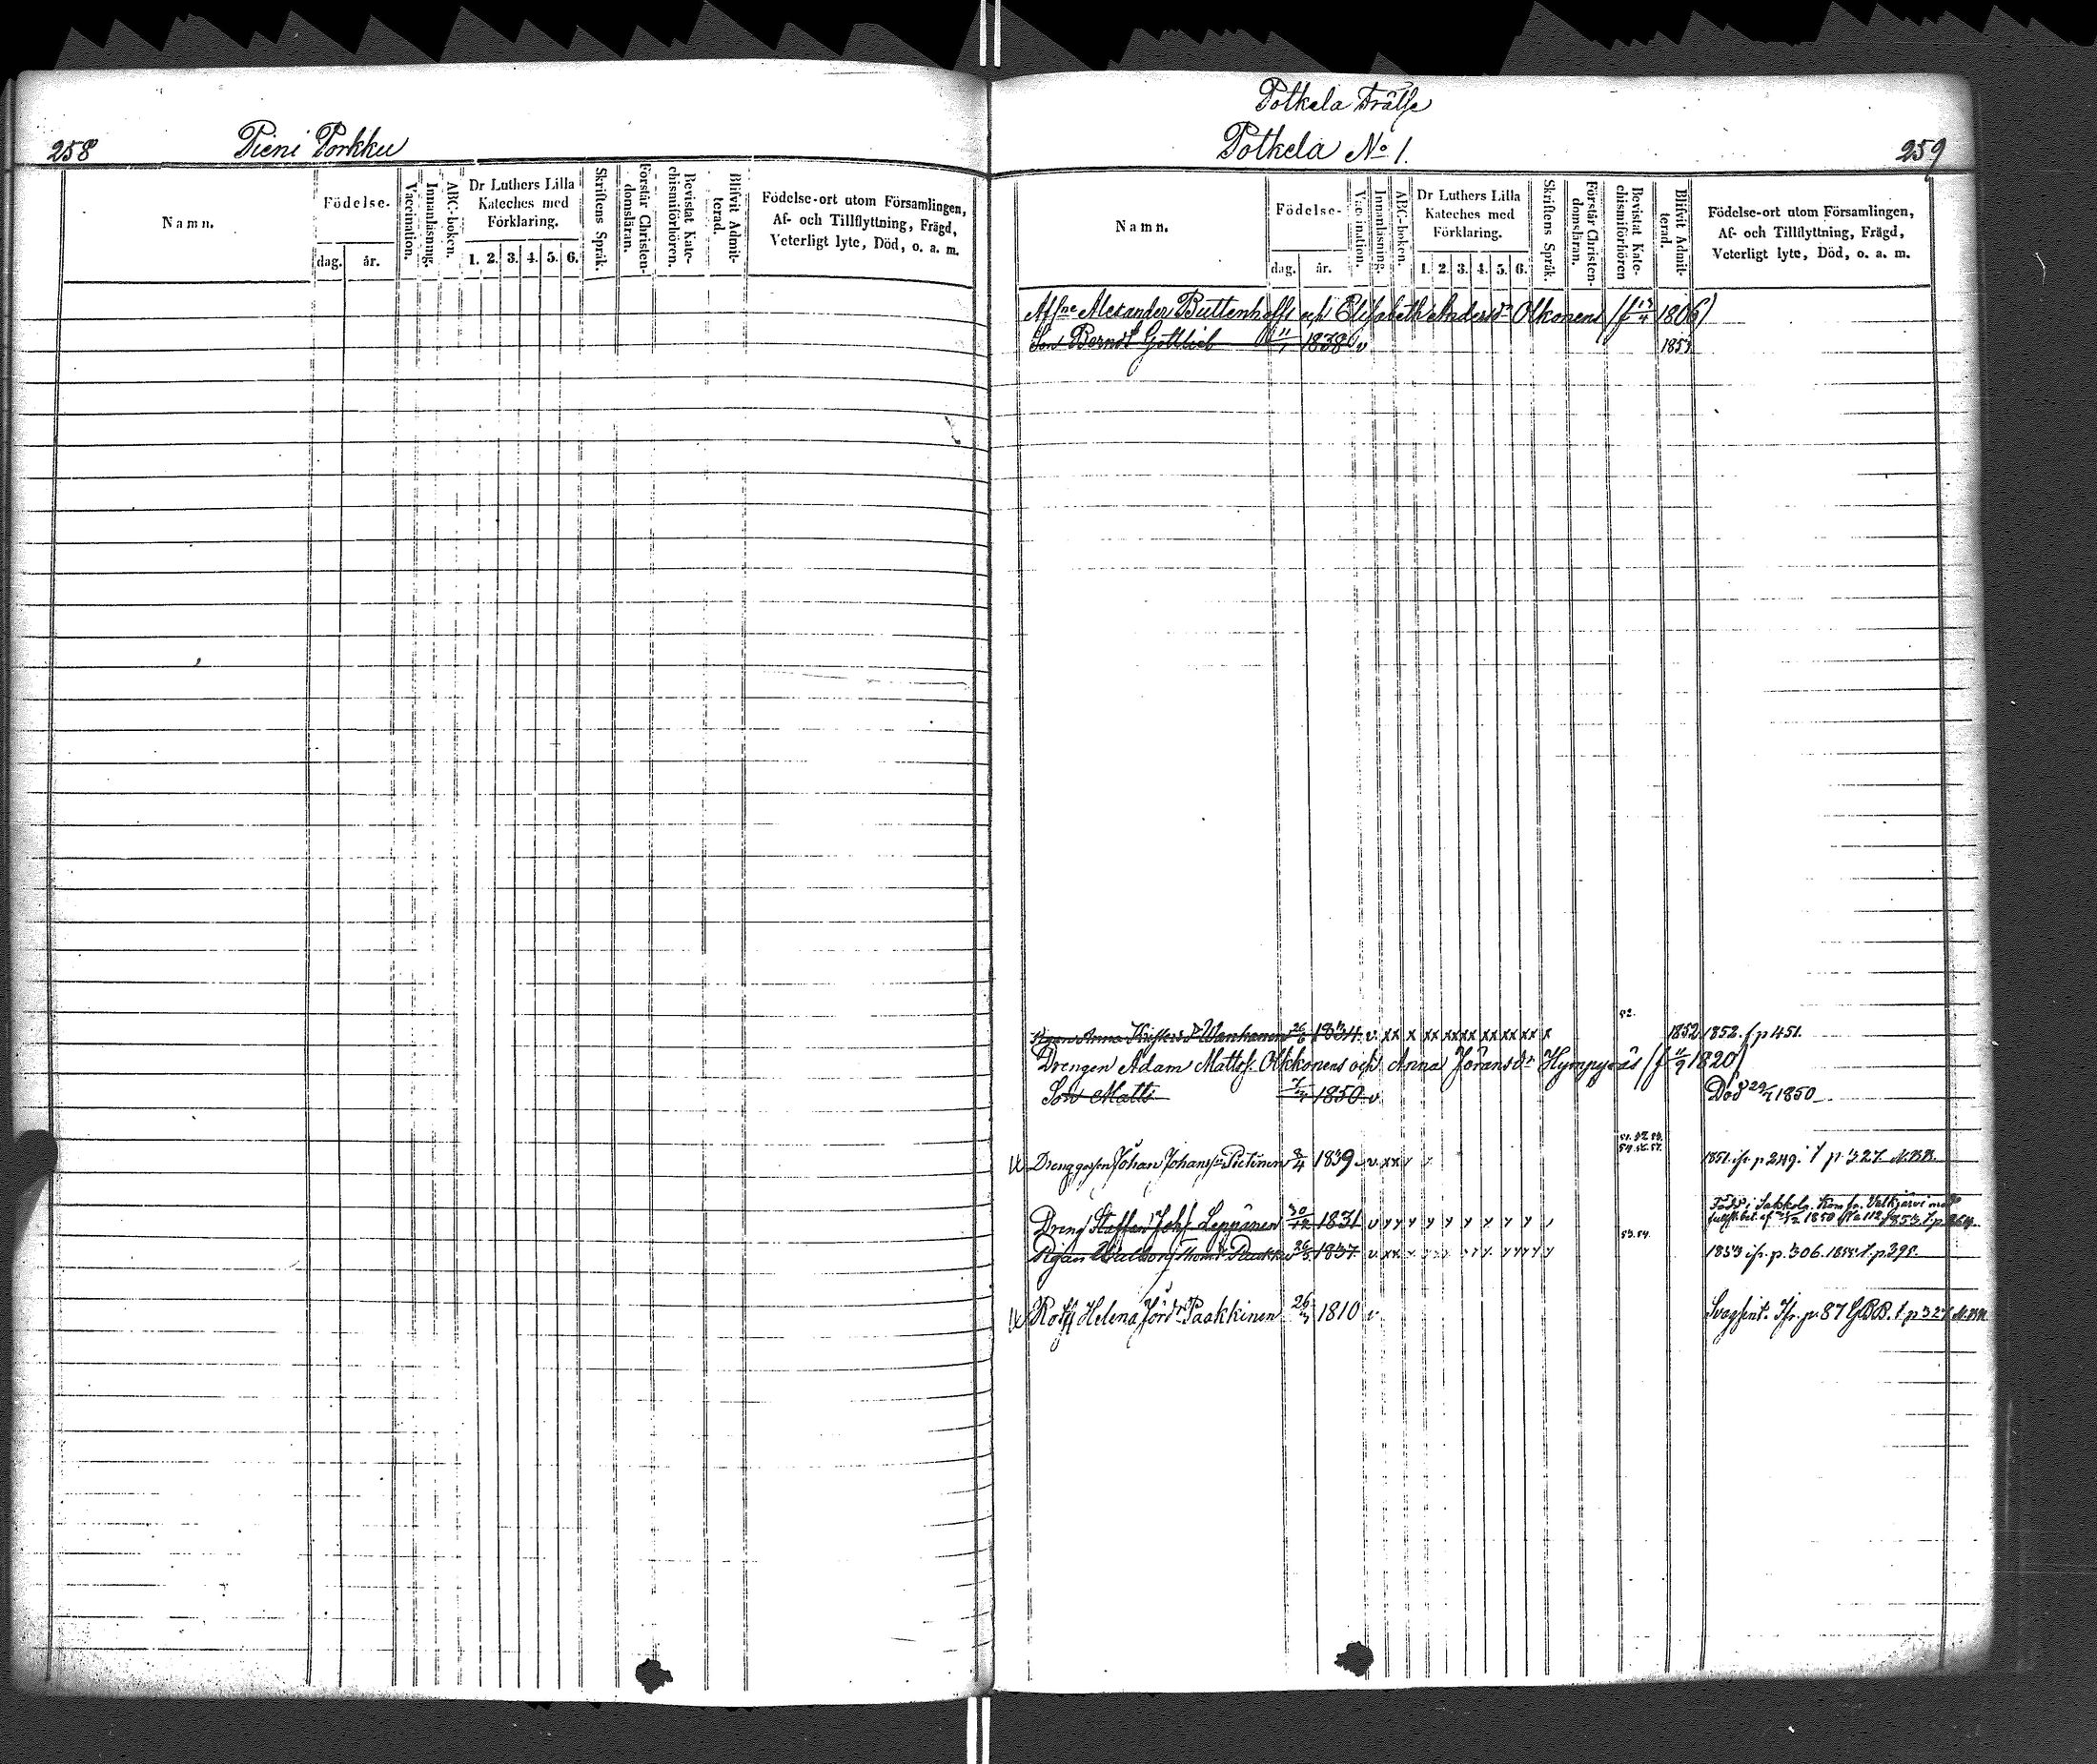 258
Pieni Porkku
Namn.
Födelse-
dag.
år.
Vaccination.
Innanläsning.
ABC-boken.
Dr Luthers Lilla
Kateches med
Förklaring.
1. 2. 3. 4. 5. 6.
Skriftens Språk.
Förstår Christen-
domsläran.
Bevistat Kate-
chismiförhören.
Blifvit Admit-
terad.
Födelse-ort utom Församlingen,
Af- och Tillflyttning, Frägd,
Veterligt lyte, Död, o. a. m.
Potkela Frälse
Potkela No 1.
259
Namn.
Födelse-
dag.
år.
Vaccination.
Innanläsning.
ABC-boken.
Dr Luthers Lilla
Kateches med
Förklaring.
1. 2. 3. 4. 5. 6.
Skriftens Språk.
Förstår Christen-
domsläran.
Bevistat Kate-
chismiförhören
Blifvit Admit-
terad.
Födelse-ort utom Församlingen,
Af- och Tillflyttning, Frägd,
Veterligt lyte, Död, o. a. m.
Alexander Buttenhoffs och Elisabeth Andersdr Olkonens (f 13/4 1806)
Son Berndt Gottlieb 11/1 1838 v 1853
52.
Pigan Anna 1834 v xx x xx xx xx xx xx xx x 1852 1852. f p 451.
Drengen Adam Mattss. Olkkonens och Anna Joransdr Hympyräs (f 11/9 1820)
Son Matti 1850 v Död 29/7 1850
51. 52. 53.
54. 56. 57.
Drenggossen Johan Johansson Pietinen 8/4 1839 v xx 1851. ifr. p 249. f p 327 N.B.B.
Född i Sakkola. Kom fr. Valkjärvi med
Dreng Staffan Johs. Leppänen 30/12 1831 v
53. 54.
Pigan Walborg Thomdr Paukku 26/5 1837 v xx 1853 ifr. p. 306. 1855 f. p 295.
Helena Jördr Paakkinen 1810 v Svagsint. Ifr. p. 87 G.B.B. f p 327 N.B.B.